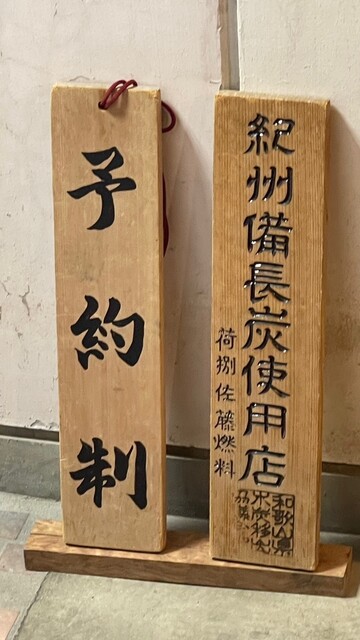 予約制
紀州備長炭使用店
荷捌佐藤燃料
和歌山県